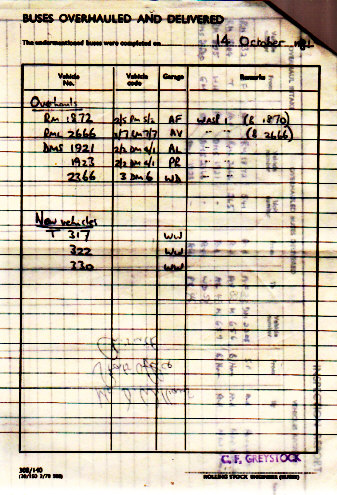 BUSES OVERHAULED AND DELIVERED
The undermentioned buses were completed on 14 October
Vehicle No. Vehicle code Garage Remarks
Overhauls
RM 1872 2/5 RM 5/2 AF was (B 1870)
RML 2666 2/7 RM 7/7 AV " " (B 2666)
DMS 1921 AL " "
1923 PR " "
2366 3 DM 6 WD
New vehicles
T 317 WW
322 WW
330 WW
C. F. GREYSTOCK
308/140
ROLLING STOCK ENGINEER (BUSES)